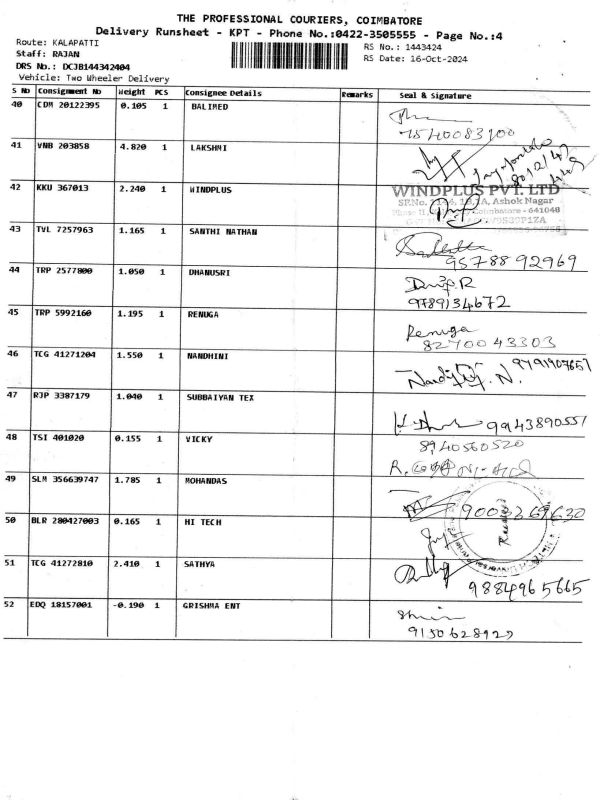 THE PROFESSIONAL COURIERS, COIMBATORE
Delivery Runsheet - KPT - Phone No.:0422-3505555 - Page No.:4
Route: KALAPATTI
RS No.: 1443424
Staff: RAJAN
RS Date: 16-Oct-2024
DRS No.: DCJB144342404
Vehicle: Two Wheeler Delivery
S No Consignment No Weight PCS Consignee Details Remarks Seal & Signature
40 CDM 20122395 0.105 1 BALIMED
7540083100
41 VNB 203858 4.820 1 LAKSHMI
42 KKU 367013 2.240 1 WINDPLUS
WINDPLUS PVT. LTD
Ashok Nagar
Coimbatore - 641048
43 TVL 7257963 1.165 1 SANTHI NATHAN
9578892969
44 TRP 2577800 1.050 1 DHANUSRI
9789134672
45 TRP 5992160 1.195 1 RENUGA
Renuga
8270043303
46 TCG 41271204 1.550 1 NANDHINI
9791907657
N.
47 RJP 3387179 1.040 1 SUBBAIYAN TEX
9943890551
48 TSI 401020 0.155 1 VICKY
8940560520
R.
49 SLM 356639747 1.785 1 MOHANDAS
9003269630
50 BLR 280427003 0.165 1 HI TECH
Received
51 TCG 41272810 2.410 1 SATHYA
9884965665
52 EDQ 18157001 -0.190 1 GRISHMA ENT